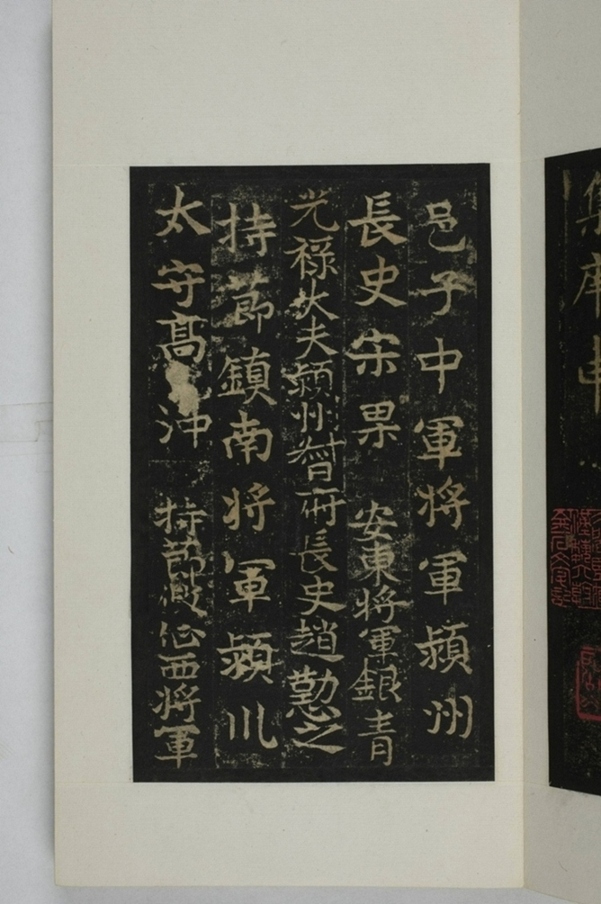 邑子中軍將軍潁州
長史宋果 安東將軍銀青
光祿大夫潁州督府長史趙勤之
持節鎮南將軍潁川
太守高沖 持節征西將軍